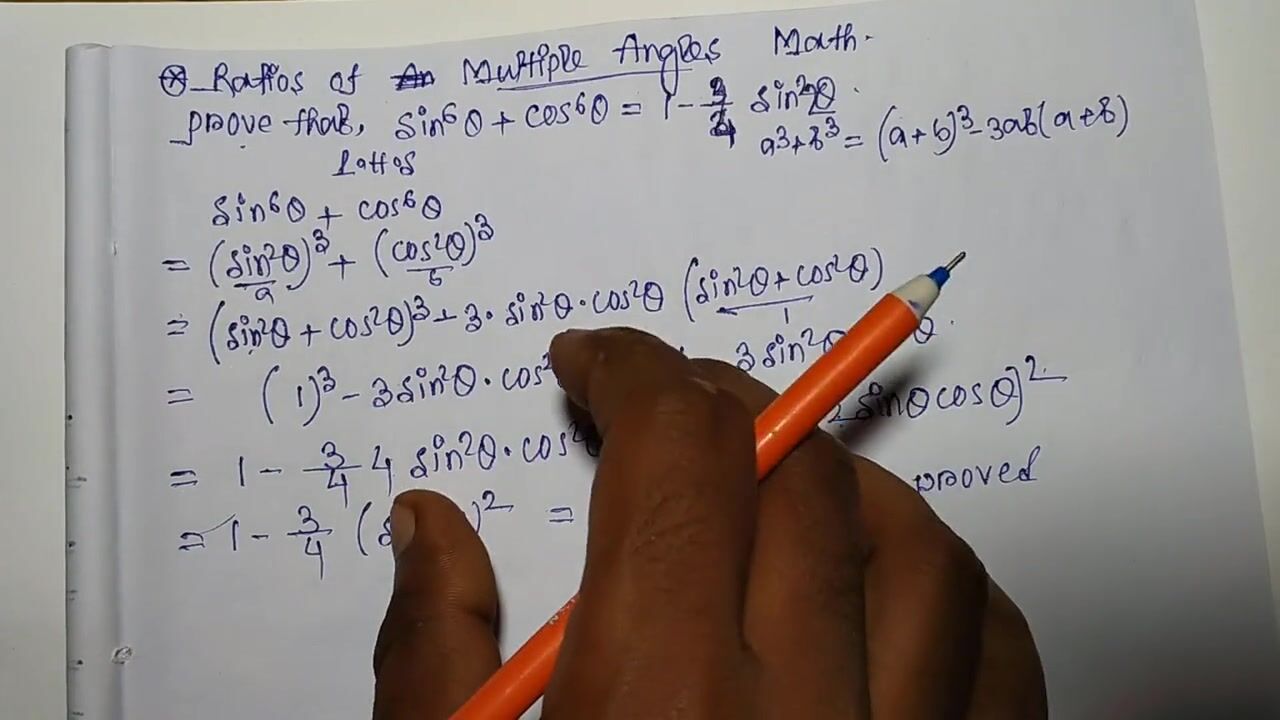 ⊛ Ratios of Multiple Angles Math.
prove that, sin⁶θ + cos⁶θ = 1 - 3/4 sin²2θ.
a³+b³ = (a+b)³-3ab(a+b)
sin⁶θ + cos⁶θ
= (sin²θ)³ + (cos²θ)³
a b
= (sin²θ + cos²θ)³ - 3·sin²θ·cos²θ (sin²θ+cos²θ)
1
= (1)³ - 3sin²θ·cos² 3sin²θ θ.
= 1 - 3/4 4 sin²θ·cos²θ 2sinθcosθ)²
= 1 - 3/4 ( )² = proved